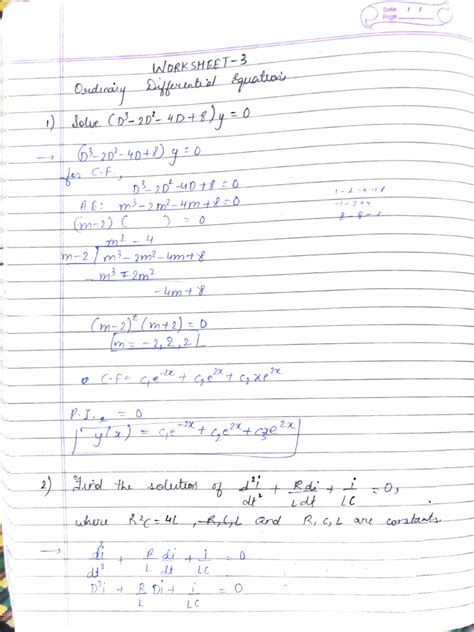 Date: 1 1
Page
WORKSHEET-3
Ordinary Differential Equations
1) Solve (D³ - 2D² - 4D + 8)y = 0
→ (D³ - 2D² - 4D + 8) y = 0
for C.F.,
D³ - 2D² - 4D + 8 = 0
AE: m³ - 2m² - 4m + 8 = 0
(m-2) ( ) = 0
m² - 4
m-2 | m³ - 2m² - 4m + 8
m³ ∓ 2m²
-4m + 8
(m-2)² (m+2) = 0
[m = -2, 2, 2]
C.F = c₁e⁻²ˣ + c₂e²ˣ + c₃xe²ˣ
P.I. = 0
y(x) = c₁e⁻²ˣ + c₂e²ˣ + c₃e²ˣ
2) Find the solution of d²i/dt² + R di/L dt + i/LC = 0,
where R²C = 4L, R, C, L and R, C, L are constants.
→ d²i/dt² + R/L di/dt + i/LC = 0
D²i + R/L Di + i/LC = 0